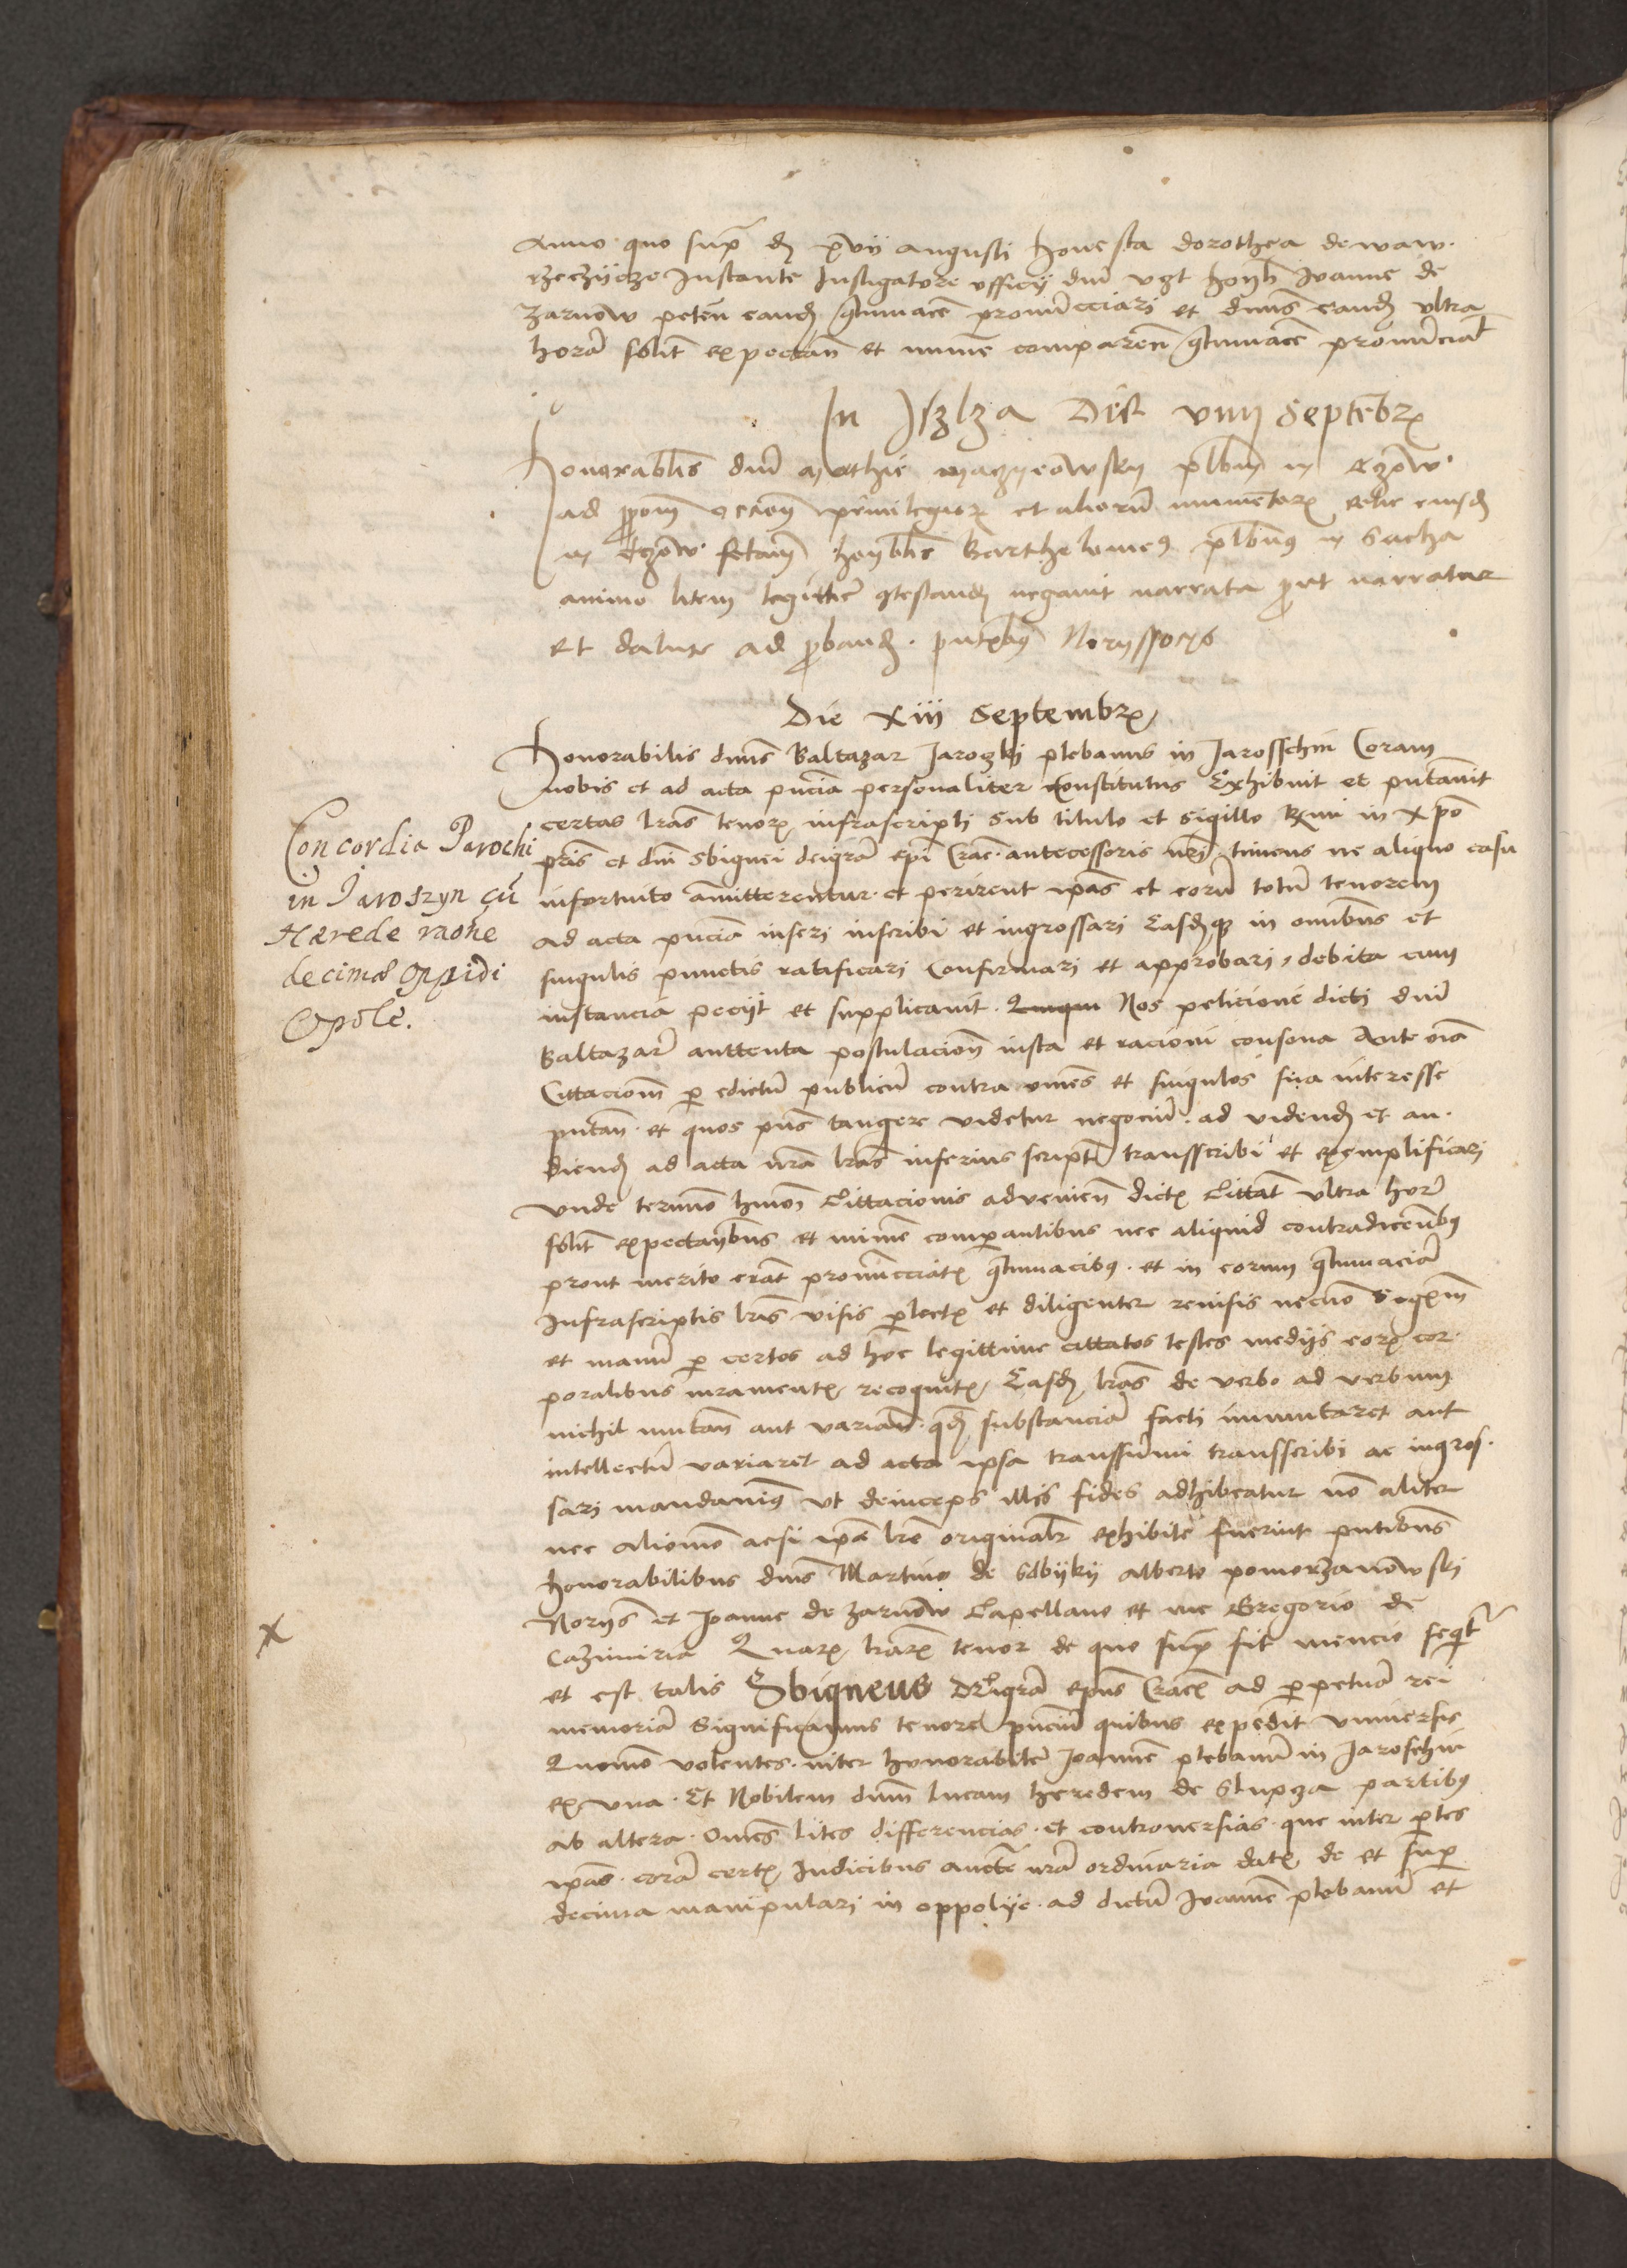 Anno quo supra die xvii augusti honesta dorothea de waw
rzeczijcze Instante Instigatore officij dni vzt honbli Joanne de
Zarnow peten eandem contumacem pronuncciari et dnus eandem ultra
horam solit expectan et minime comparen contumacem pronunciat
In Iszlza Die viiii Septembr
Honorabilis dni Mathie plbni in
ad privilegior et aliorum munimentor eccle eiusdem
in factam honblis Bartholomeus plbnus in Sacha
animo litem legittime contestandi negavit narrata prout narratur
et datur ad probandum putibus Noryssocys
Die xiii Septembr
Honorabilis dnus Baltazar Jaroczkij plebanus in Jarosschin Coram
nobis et ad acta pncia personaliter constitutus Exhibuit et pntavit
certas lras tenor infrascripti sub titulo et sigillo Rmi in xpo
pris et dni Sbignei dei gra epi Crac antecessoris nri timens ne aliquo casu
infortuito amitterentur et perirent ipas et eorum totum tenorem
ad acta pncia inseri inscribi et ingrossari Easdemque in omnibus et
singulis punctis ratificari Confirmari et approbari, debita cum
instancia peciit et supplicavit Nos peticione dicti dni
Baltazar auttenta postulacion iusta et racioni consona Ante oia
Cittacionem per edictum publicum contra omnes et singulos sua interesse
putan et quos pns tangere videtur negocium ad videndum et au
diendum ad acta nra lras inferius script transscribi et exemplificari
Unde termino hmoi Cittacionis advenien dictis Cittat ultra horam
solit expectantibus et minime comparantibus nec aliquid contradicentibus
prout merito erant pronuncciatis contumacibus et in eorum contumaciam
Infrascriptis lris visis perlectis et diligenter revisis necnon Sigillum
et manum per certos ad hoc legittime cittatos testes medijs eorum cor
poralibus iuramentis recognitis, Easdem lras de verbo ad verbum
nichil mutan aut varian quod substanciam facti immutaret aut
intellectum variaret ad acta ipsa transsumi transscribi ac ingros
sari mandavimus ut deinceps illis fides adhibeatur non aliter
nec aliomodo acsi ipe lre originalr exhibite fuerint pntibus
honorabilibus dnis Martino de Alberto pomorzanowski
Norijs et Joanne de Zarnow Capellano et me Gregorio de
Cazimiria Quarum lrarum tenor de quo supra fit mencio sequitur
et est talis Sbigneus Dei gra epus Cracen ad perpetuam rei
memoriam Significamus tenore pncium quibus expedit universis
Quomodo volentes inter honorabilem Joannem plebanum in Jaroschin
ex una Et Nobilem dnm lucam heredem de Slupcza partibus
ab altera Omnes lites differencias et controversias que inter partes
ipas coram certis Iudicibus aucte nra ordinaria datis de et super
decima manipulari in oppolije ad dictum Joannem plebanum et
Concordia Parochi
in Jaroszyn cū
Hærede raone
decimæ Oppidi
Opole.
X